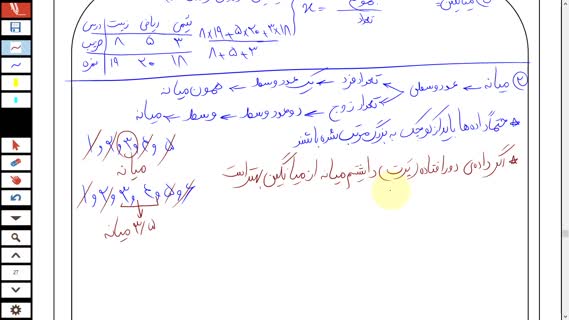 ① میانگین:
x̄ = مجموع / تعداد
۸×۱۹+۵×۲۰+۳×۱۸ / ۸+۵+۳
درس زیست ریاضی شیمی
ضریب ۸ ۵ ۳
نمره ۱۹ ۲۰ ۱۸
② میانه ← عدد وسطی
تعداد فرد ← یک عدد وسط ← همون میانه
تعداد زوج ← دو عدد وسط ← وسط ← میانه
* حتما داده ها باید از کوچک به بزرگ مرتب شده باشند
* اگر داده‌ی دور افتاده (پرت) داشتیم میانه از میانگین بهتر است
۱ و ۲ و ۳ و ۴ و ۵
میانه
۱ و ۲ و ۳ و ۴ و ۵ و ۶
۳/۵ میانه
27